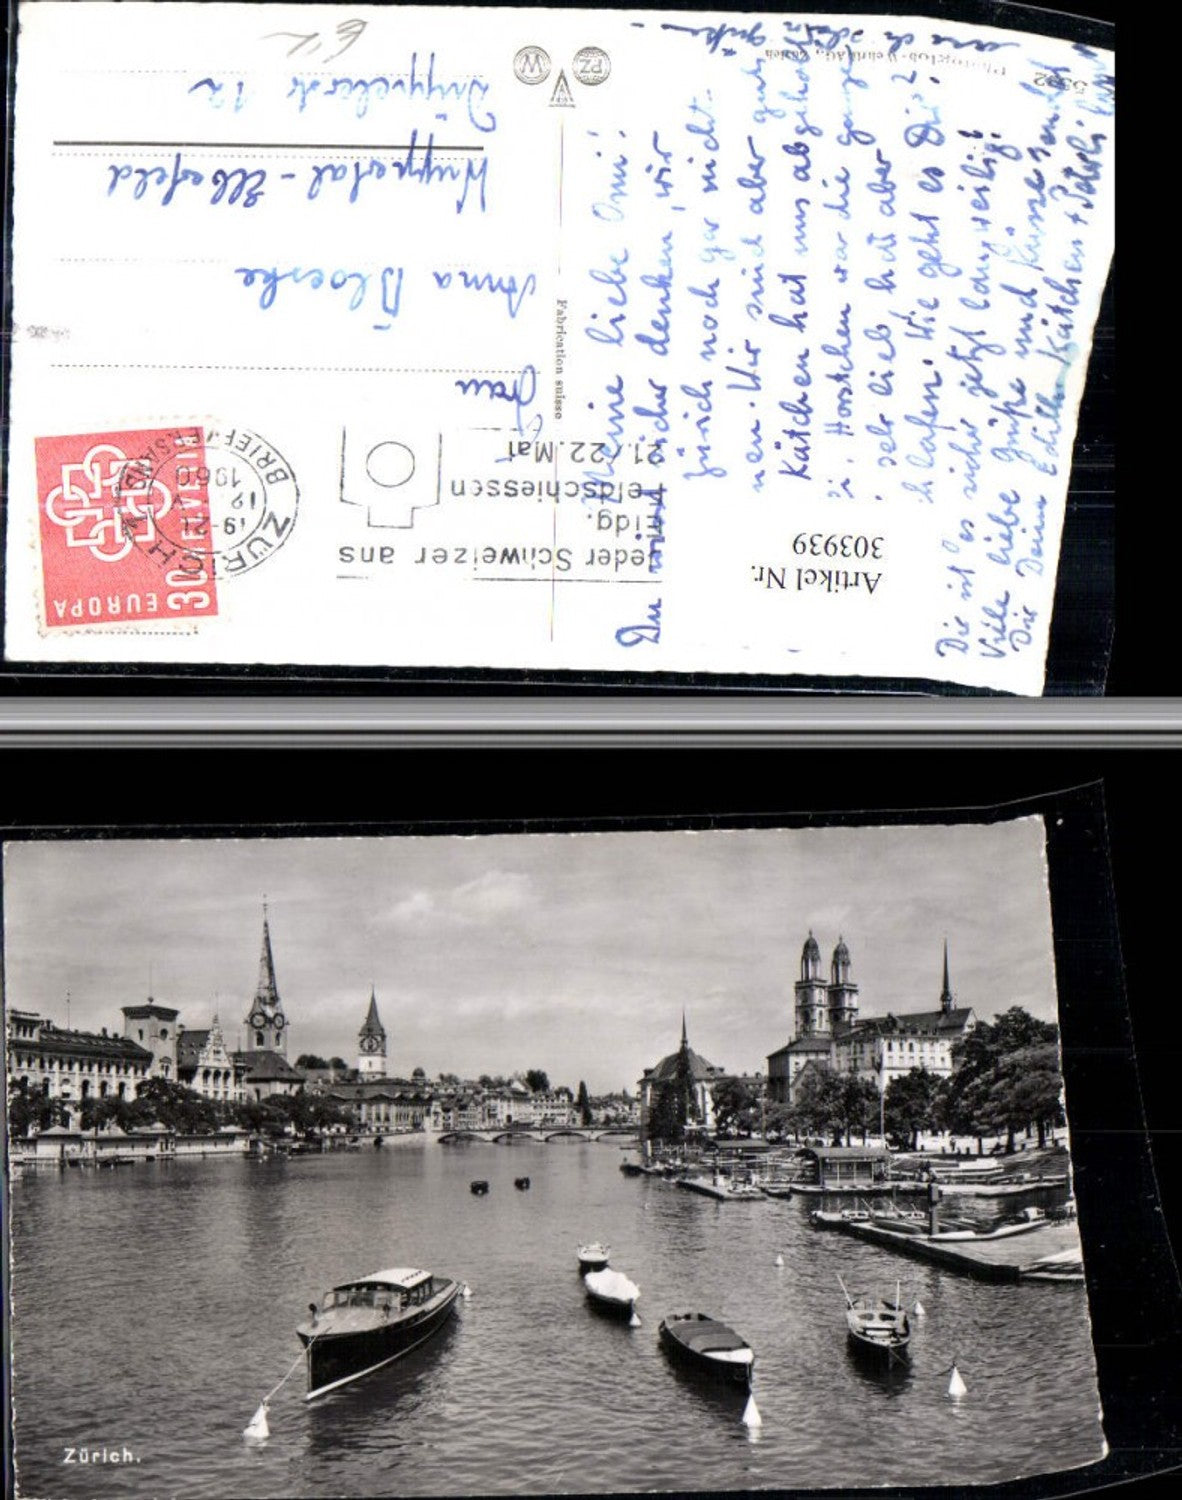 5392
Photoglob-Wehrli AG., Zürich
Meine liebe Omi!
Du wirst sicher denken, wir
noch gar nicht
nen. Wir sind aber gut
Kätchen hat uns abgeho
Horstchen war die ganze
sehr lieb hat aber
Wie geht es Dir?
Die ist es sicher jetzt langweilig!
Viele liebe Grüße und Küsse sendet
Die Deine Edith Kätchen +
Fabrication suisse
PZ
W
Jeder Schweizer ans
Eidg.
Feldschiessen
21./22. Mai
ZÜRICH
19-21
12. V
1960
BRIEFVERSAND
EUROPA
30
HELVETIA
Frau
Anna
Wuppertal - Elberfeld
12
Artikel Nr.
303939
Zürich.